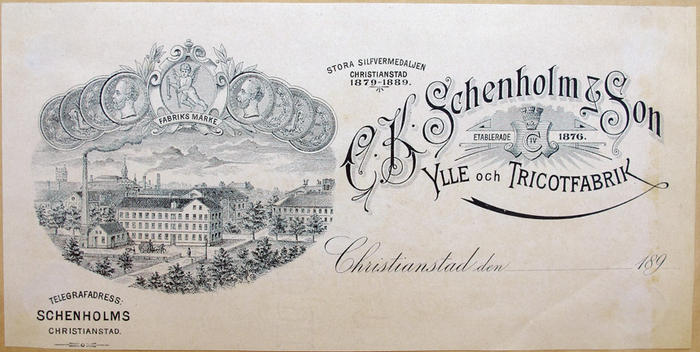 FABRIKS MÄRKE
STORA SILFVERMEDALJEN
CHRISTIANSTAD
1879-1889.
C. K. Schenholm & Son
ETABLERADE 1876.
C IV
YLLE och TRICOTFABRIK
Christianstad den 189
TELEGRAFADRESS:
SCHENHOLMS
CHRISTIANSTAD.